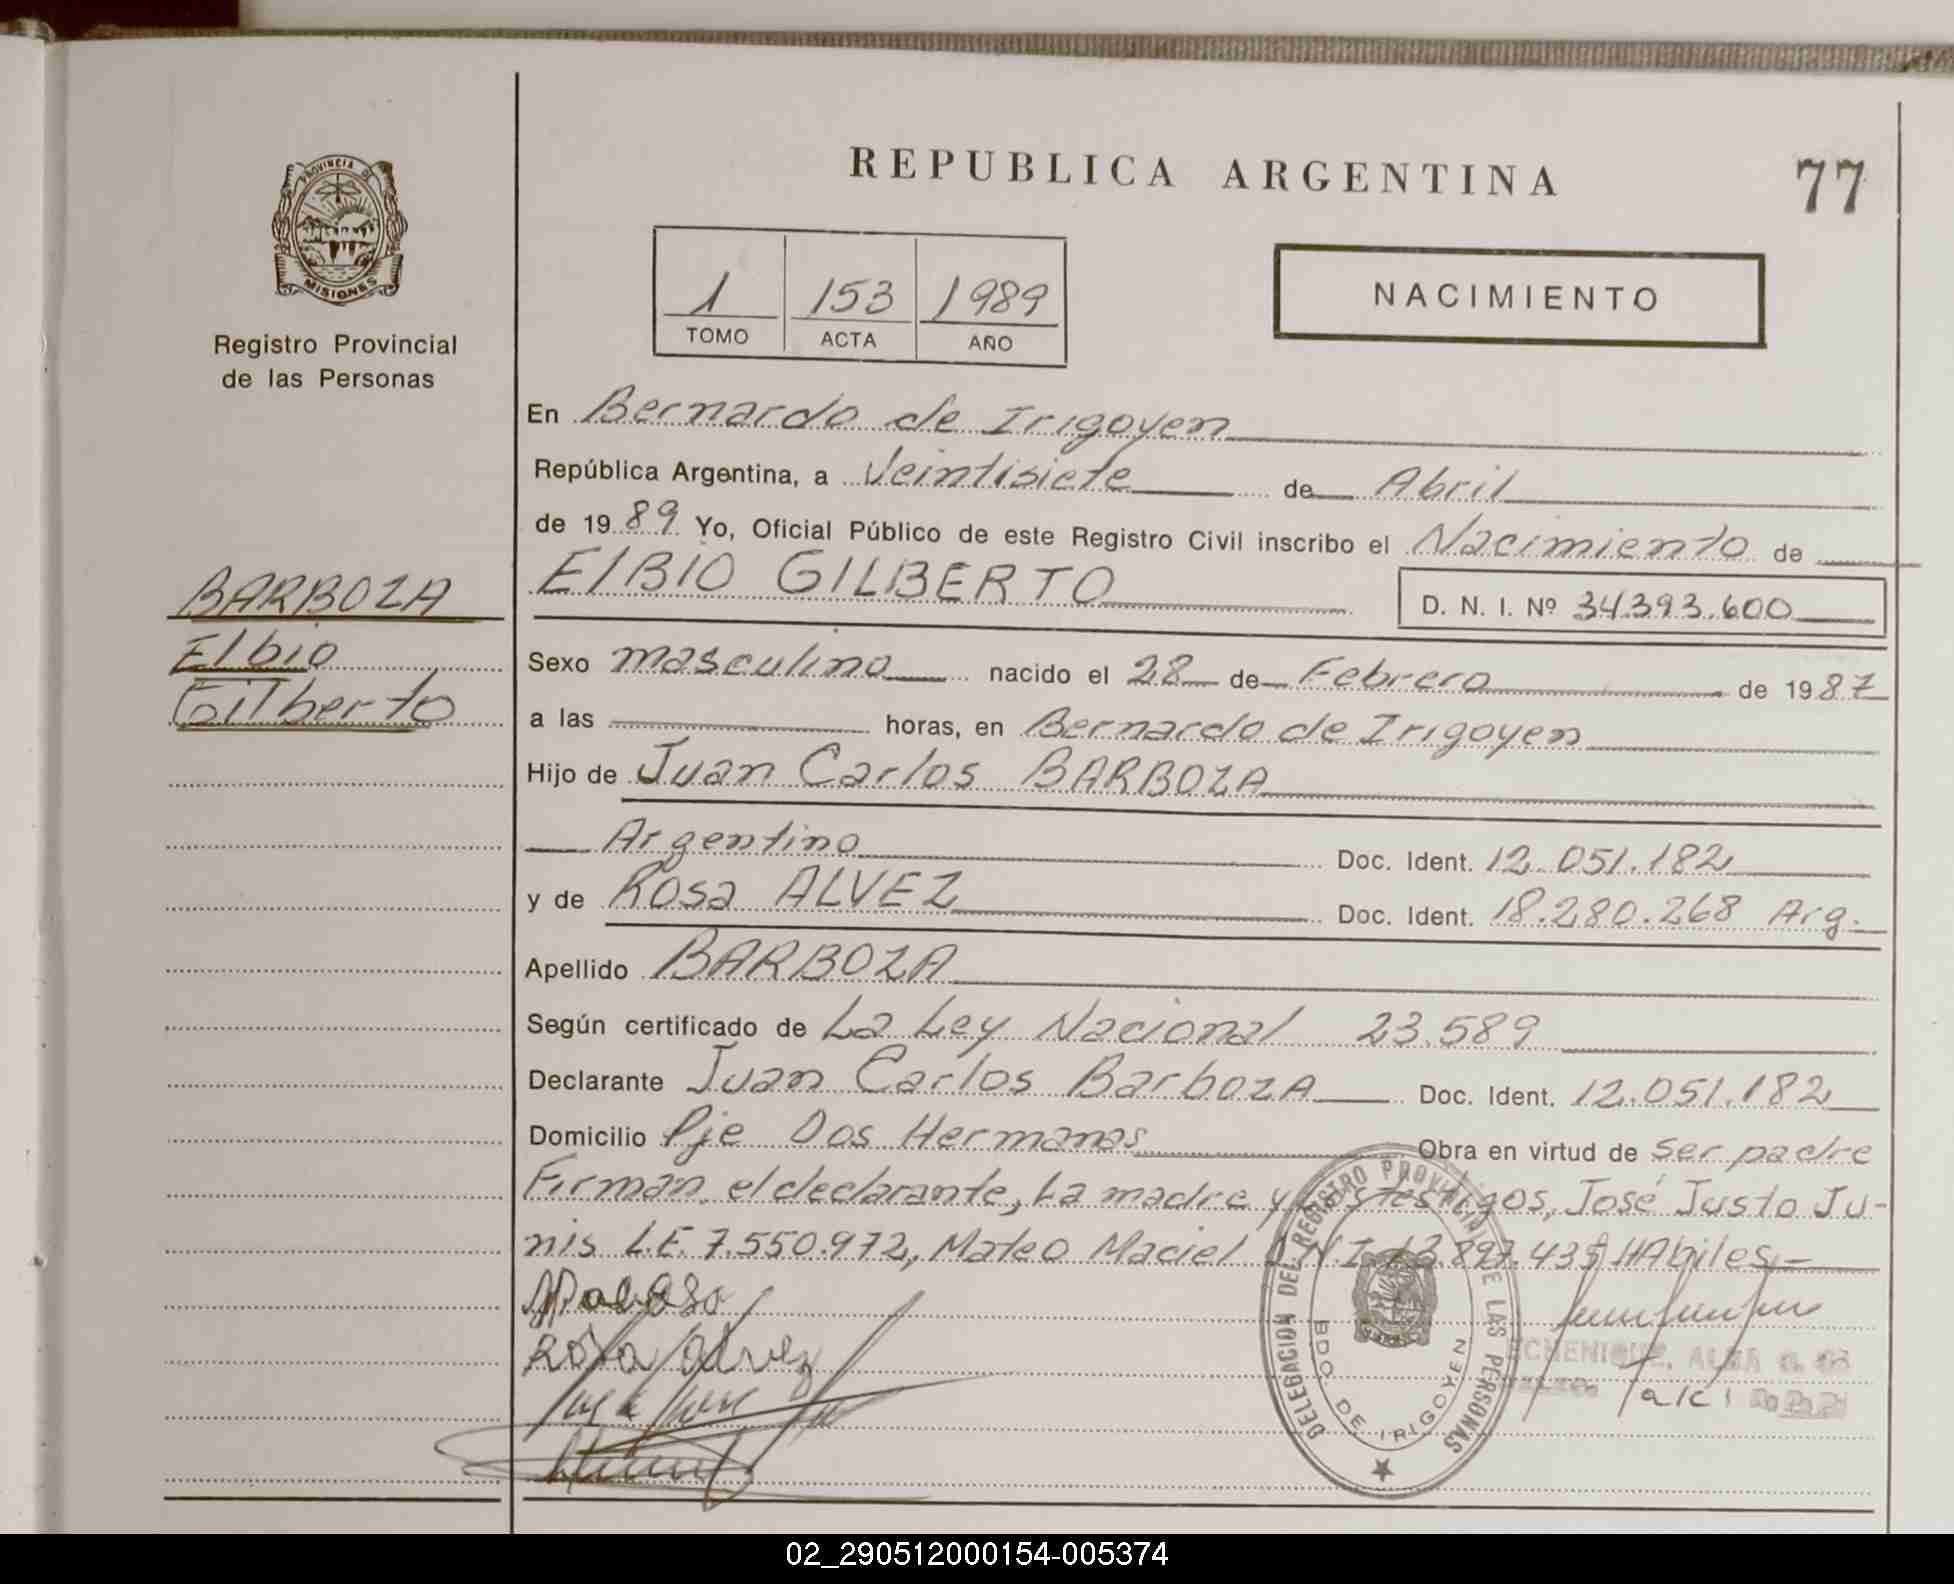 REPUBLICA ARGENTINA
77
PROVINCIA DE
MISIONES
Registro Provincial
de las Personas
1 153 1989
TOMO ACTA AÑO
NACIMIENTO
En Bernardo de Irigoyen
República Argentina, a Veintisiete de Abril
de 1989 Yo, Oficial Público de este Registro Civil inscribo el Nacimiento de
ElBIO GILBERTO
D. N. I. Nº 34.393.600
BARBOZA
Elbio
Gilberto
Sexo masculino nacido el 28 de Febrero de 1987
a las horas, en Bernardo de Irigoyen
Hijo de Juan Carlos BARBOZA
Argentino Doc. Ident. 12.051.182
y de Rosa ALVEZ Doc. Ident. 18.280.268 Arg.
Apellido BARBOZA
Según certificado de La Ley Nacional 23.589
Declarante Juan Carlos BarbozA Doc. Ident. 12.051.182
Domicilio Pje Dos Hermanas Obra en virtud de ser padre
Firman el declarante, La madre y testigos, José Justo Ju-
nis L.E. 7.550.972, Mateo Maciel HAbiles
Rosa Alvez
DELEGACION DEL REGISTRO PROVINCIAL DE LAS PERSONAS
BDO. DE IRIGOYEN
ECHENIQUE, ALBA
02_290512000154-005374